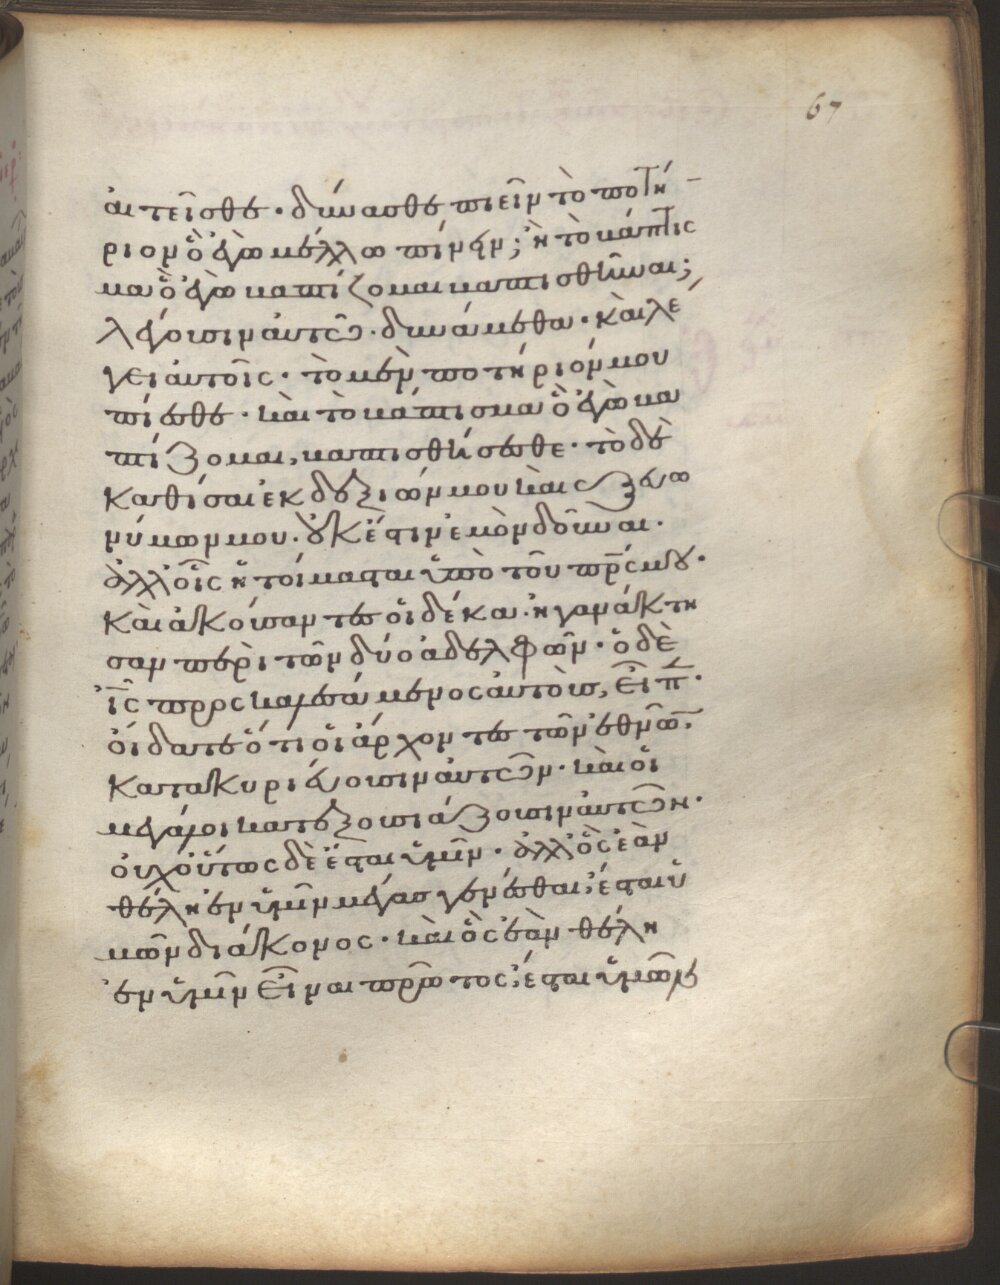 67
αἰτεῖσθε · δύνασθε πιεῖν τὸ ποτή
ριον ὃ ἐγὼ μέλλω πίνειν; ἢ τὸ βάπτισ
μα ὃ ἐγὼ βαπτίζομαι βαπτισθῆναι;
λέγουσιν αὐτῶ · δυνάμεθα · καὶ λέ
γει αὐτοῖς · τὸ μὲν ποτήριόν μου
πίεσθε · καὶ τὸ βάπτισμα ὃ ἐγὼ βα
πτίζομαι, βαπτισθήσεσθε · τὸ δὲ
καθίσαι ἐκ δεξιῶν μου καὶ ἐξ εὐω
νύμων μου · οὐκ ἔστιν ἐμὸν δοῦναι ·
ἀλλ' οἷς ἡτοίμασται ὑπὸ τοῦ πρς μου ·
καὶ ἀκούσαντες οἱ δέκα · ἠγανάκτη
σαν περὶ τῶν δύο ἀδελφῶν · ὁ δὲ
ις προσκαλεσάμενος αὐτοὺς, εἶπ ·
οἴδατε ὅτι οἱ ἄρχοντες τῶν ἐθνῶν
κατακυριεύουσιν αὐτῶν · καὶ οἱ
μεγάλοι κατεξουσιάζουσιν αὐτῶν ·
οὐχ οὕτως δὲ ἔσται ὑμῖν · ἀλλ' ὃς ἐὰν
θέλη ἐν ὑμῖν μέγας γενέσθαι, ἔσται ὑ
μῶν διάκονος · καὶ ὃς ἐὰν θέλη
ἐν ὑμῖν εἶναι πρῶτος, ἔσται ὑμῶν